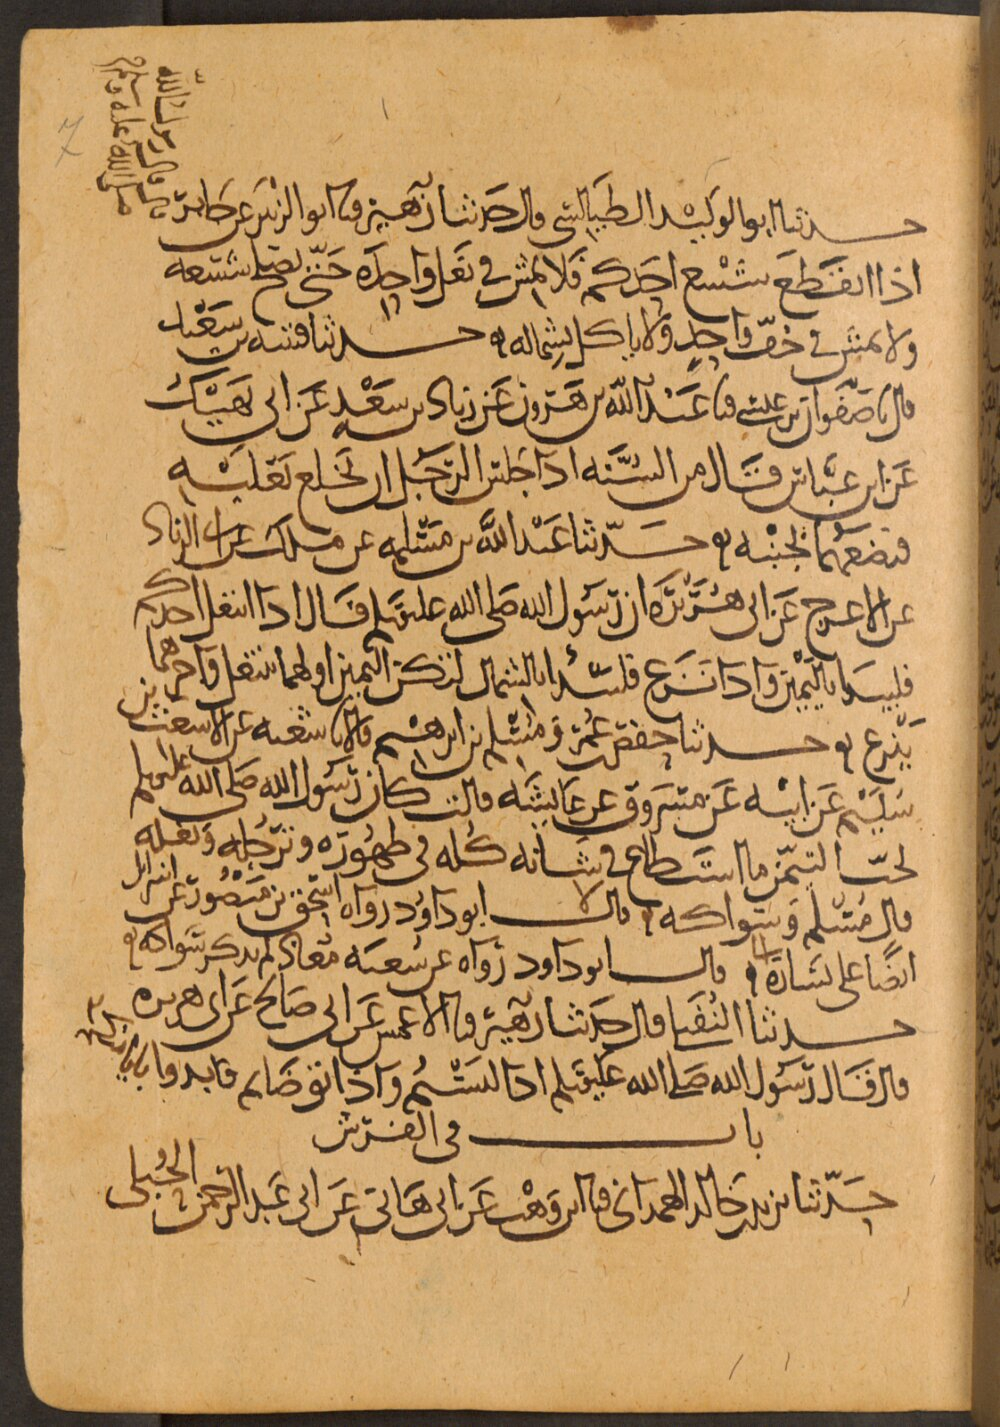 قال قال رسول الله
صلى الله عليه وسلم
7
حدثنا ابو الوليد الطيالسي قال حدثنا زهير نا ابو الزبير عن جابر
اذا انقطع شسع احدكم فلا يمش في نعل واحدة حتى يصلح شسعه
ولا يمش في خف واحد ولا ياكل بشماله ه حدثنا قتيبه بن سعيد
قال نا صفوان بن عيسى نا عبد الله بن هرون عن زياد بن سعد عن ابي نهيك
عن ابن عباس قال من السنه اذا جلس الرجل ان يخلع نعليه
فيضعهما بجنبه ه حدثنا عبد الله بن مسلمه عن ملك عن ابي الزناد
عن الاعرج عن ابي هريرة ان رسول الله صلى الله عليه وسلم قال اذا انتعل احدكم
فليبدا باليمين واذا نزع فليبدا بالشمال لتكن اليمين اولهما تنتعل واخرهما
ينزع ه حدثنا حفص بن عمر ومسلم بن ابرهيم قالا نا شعبه عن الاشعث بن
سليم عن ابيه عن مسروق عن عايشه قالت كان رسول الله صلى الله عليه وسلم
يحب التيمن ما استطاع في شانه كله في طهوره وترجله ونعله
قال مسلم وسواكه ه قال ابو داود رواه اسحق بن منصور عن اسرايل
ايضا على يساره ه قال ابو داود رواه عن شعبه معاذ لم يذكر سواكه ه
حدثنا النفيلي قال حدثنا زهير نا الاعمش عن ابي صالح عن ابي هريره
قال قال رسول الله صلى الله عليه وسلم اذا لبستم واذا توضاتم فابدوا بايامنكم
باب في الفرش
حدثنا يزيد بن خالد الهمداني نا ابن وهب عن ابي هاني عن ابي عبد الرحمن الحبلي